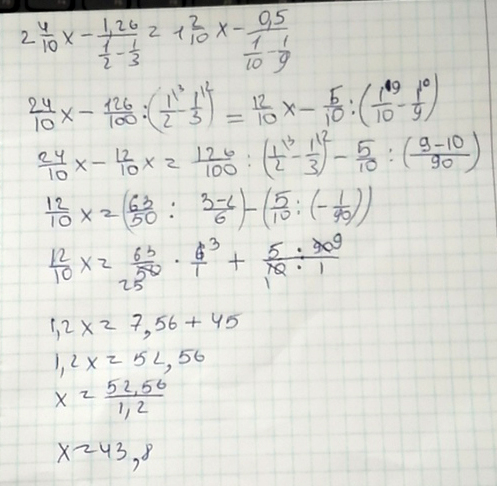 2 4/10 x - 1,26/(1/2 - 1/3) = 1 2/10 x - 0,5/(1/10 - 1/9)
24/10 x - 126/100 : (1\3/2 - 1\2/3) = 12/10 x - 5/10 : (1\9/10 - 1\10/9)
24/10 x - 12/10 x = 126/100 : (1\3/2 - 1\2/3) - 5/10 : ((9-10)/90)
12/10 x = (63/50 : (3-2)/6) - (5/10 : (-1/90))
12/10 x = 63/50 25 · 6 3/1 + (5 : 90 9)/(10 1 : 1)
1,2 x = 7,56 + 45
1,2 x = 52,56
x = 52,56/1,2
x = 43,8